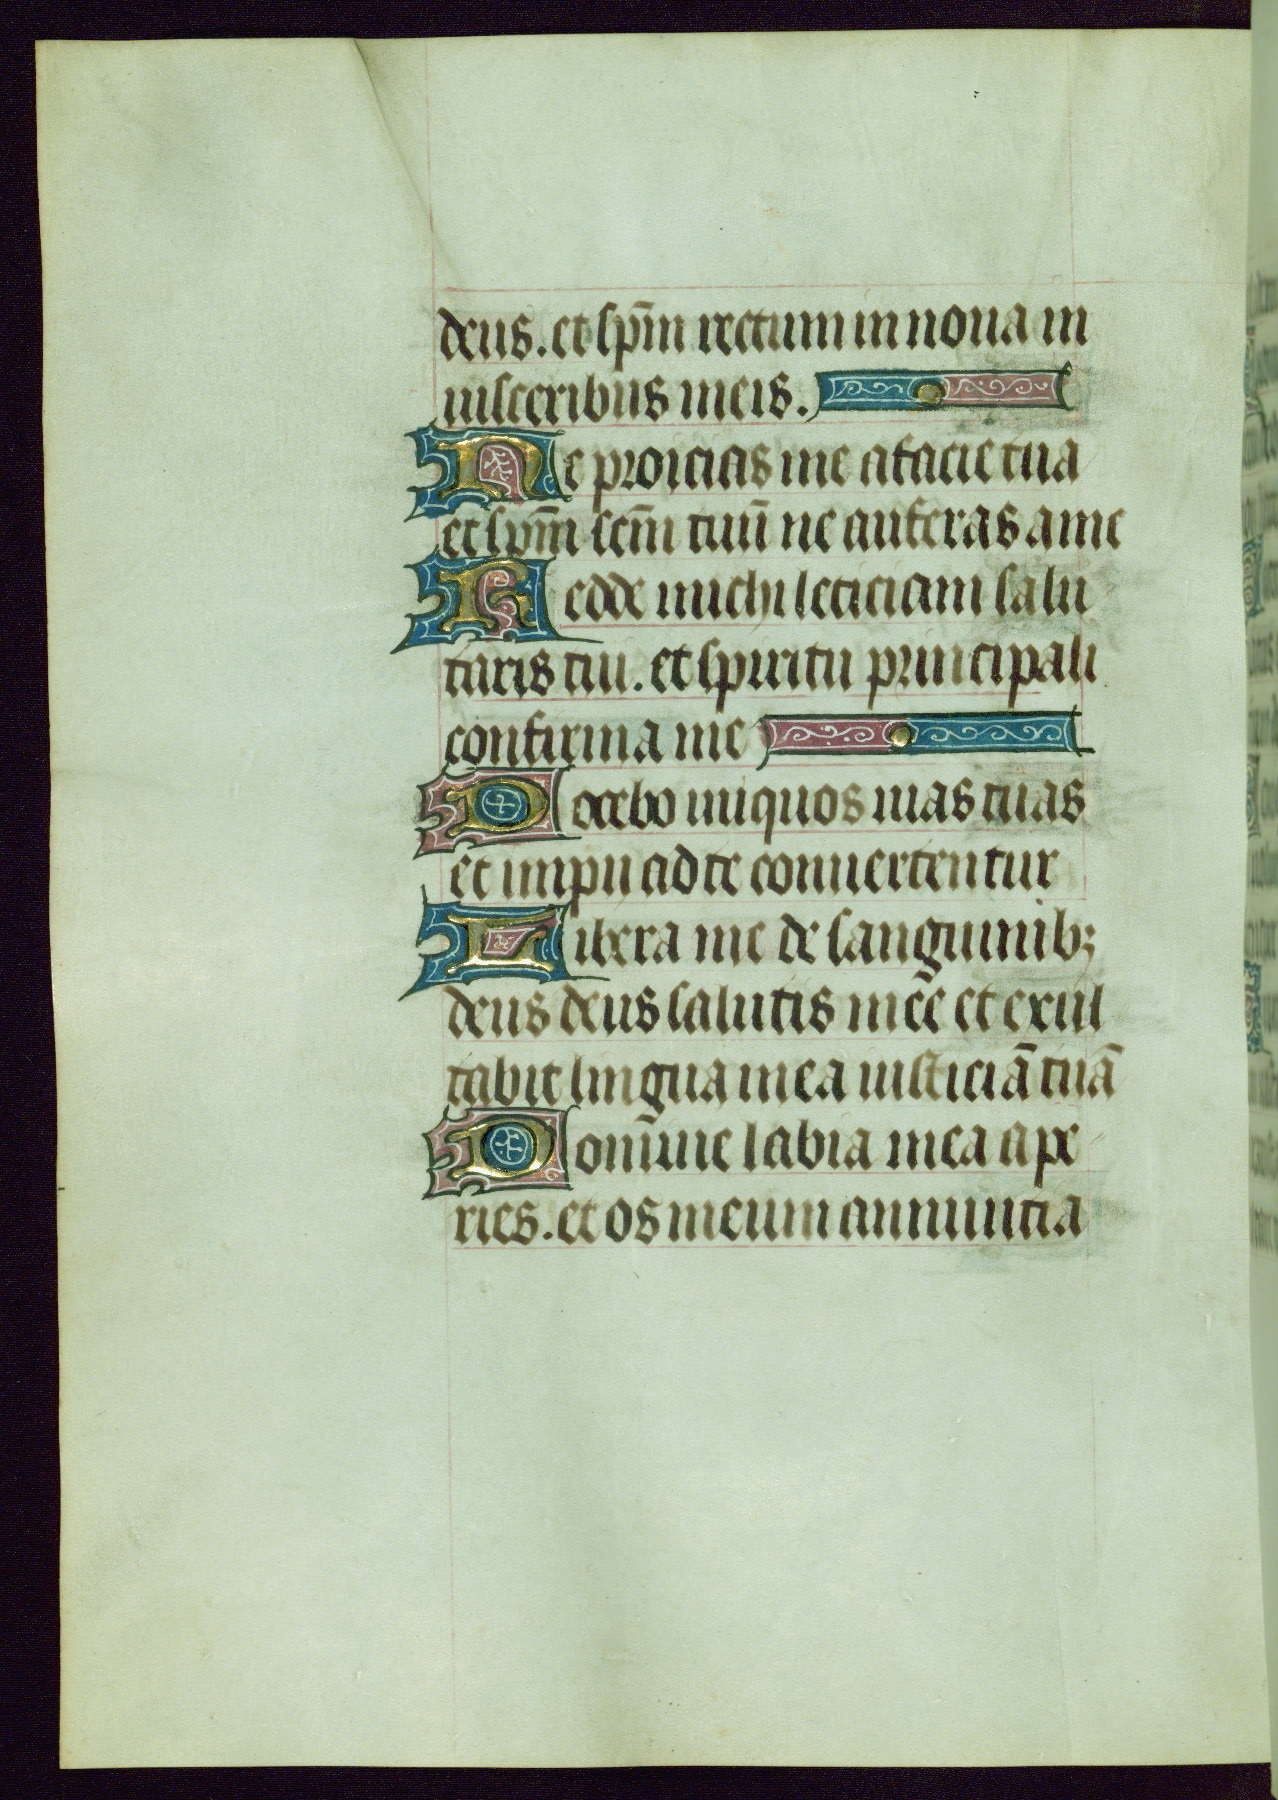 deus. et sp̄m rectum in noua in
uisceribus meis.
Ne proicias me a facie tua
et sp̄m sc̄m tuū ne auferas a me
Redde michi leticiam salu
taris tui. et spiritu principali
confirma me
Docebo iniquos uias tuas
et impii ad te conuertentur
Libera me de sanguinib;
deus deus salutis mee et exul
tabit lingua mea iusticiā tuā
Domine labia mea ape
ries. et os meum annuncia